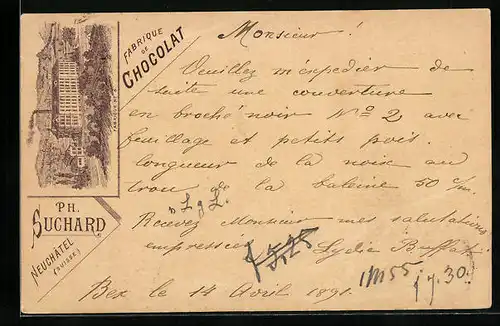 FABRIQUE
DE
CHOCOLAT
FABRIQUE DE
PH.
SUCHARD
NEUCHÂTEL
(SUISSE)
Monsieur!
Veuillez m'expedier de
suite une couverture
en broché noir No 2 avec
feuillage et petits pois.
longueur de la noix au
trou, la baleine 50 c/m.
Recevez Monsieur mes salutations
empressées Lydie Buffat
Bex le 14 Avril 1891.
1M55
1 y. 30.